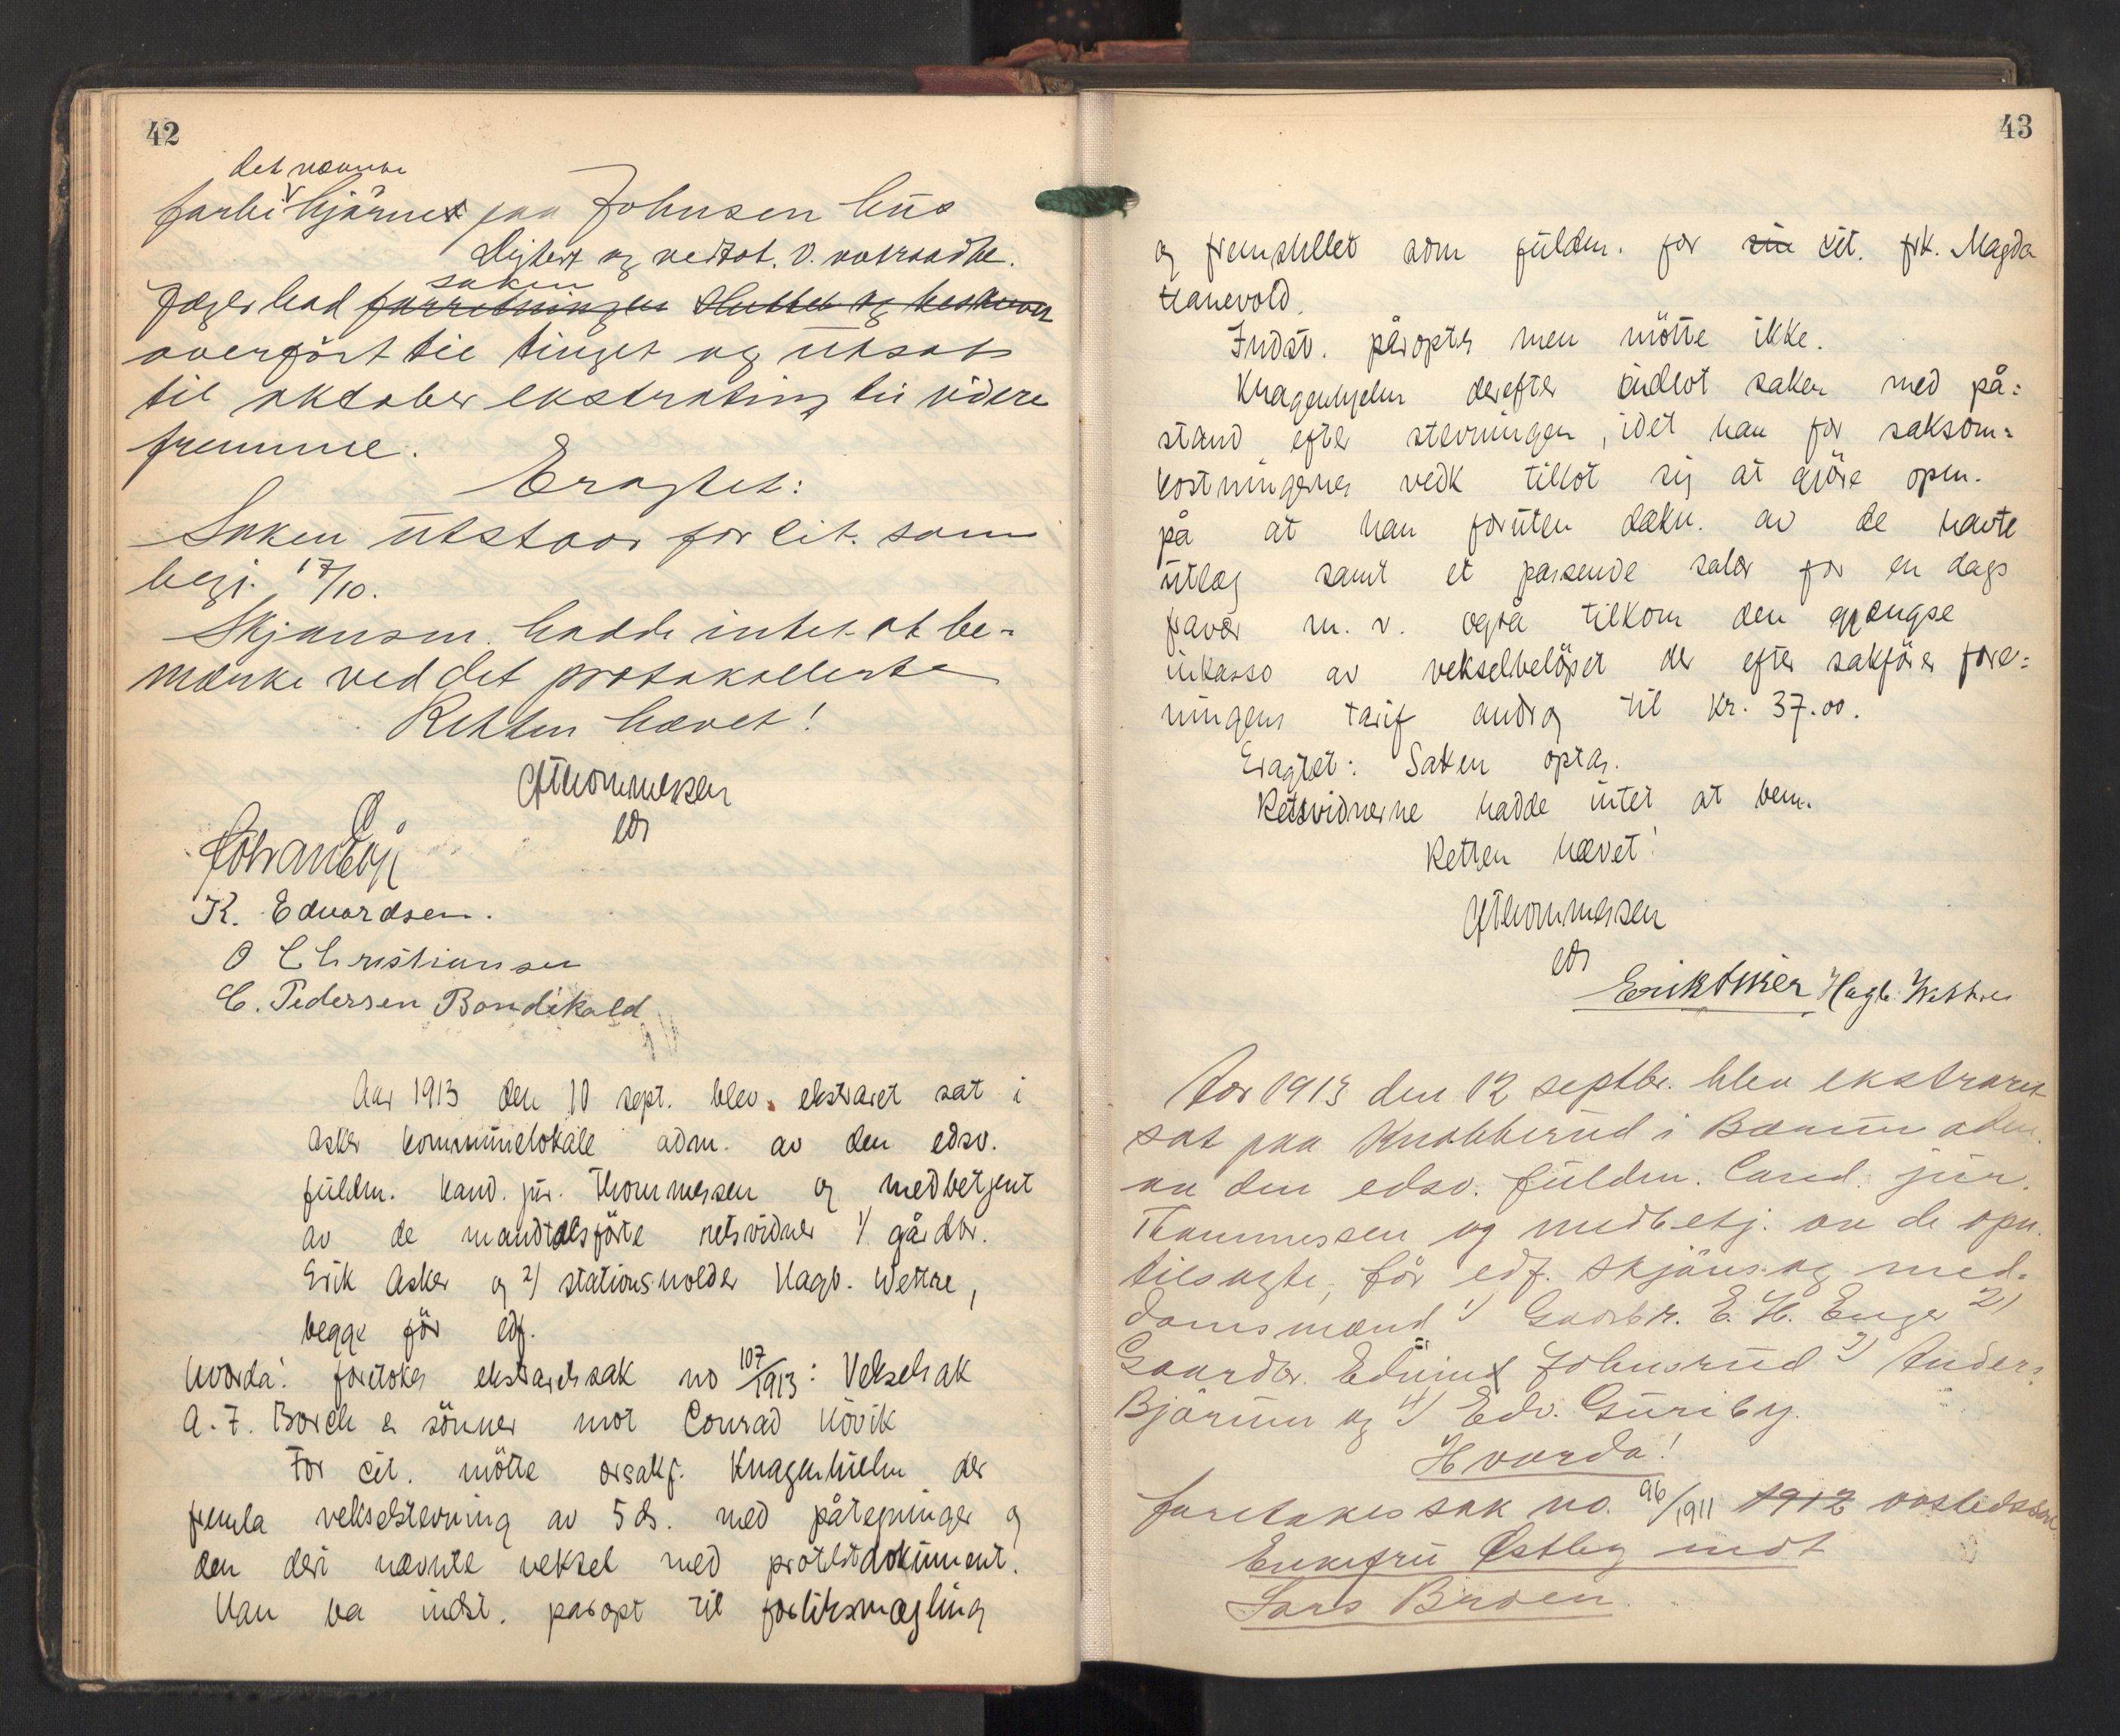 42
det nævnte
forbi hjørnet paa Johnsen hus
og vedtat.
saken
Jægerhad forretningen sluttet og
overført til tinget og utsat
til oktober ekstrating til videre
fremme.
Eragtet:
Saken utstaar for cit. som
begj. 17/10.
Skjønsm. hadde intet at be-
merke ved det protokollerte
Retten hævet!
Thommessen
eds
K. Edvardsen.
O Christiansen
C. Pedersen Bondikold
Aar 1913 den 10 sept. blev ekstraret sat i
Asker kommunelokale adm. av den edsv.
fuldm. kand. jur. Thommessen og medbetjent
av de mandtalsförte retsvidner 1/ gårdbr.
Erik Asker og 2/ stationsholder Hagb. Wettre,
begge för edf.
Hvorda! foretokes ekstraretssak no 107/1913: Vekselsak
A. F. Borch & sönner mot Conrad Hövik
For cit. mötte orsakf. Knagenhielm der
fremla vekselstevning av 5 ds. med påtegninger og
den deri nævnte veksel med protestdokument.
Han ba indst. paropt til forliksmægling
43
og fremstillet som fuldm. for sin cit. frk. Magda
Hanevold.
Indst. påroptes men mötte ikke.
Knagenhjelm derefter indlot saken med på=
stand efter stevningen, idet han for saksom=
kostningernes vedk tillot sig at gjöre opm.
på at han foruten dækn. av de havte
utlæg samt et passende salær for en dags
fravær m. v. også tilkom den gjængse
inkasso av vekselbelöpet der efter sakförer fore=
ningens tarif androg til Kr. 37.00.
Eragtet: Saken optas.
Retsvidnerne hadde intet at bem.
Retten hævet!
Thommessen
eds
Erik Asker Hagb. Wettre
Aar 1913 den 12 septbr. blev ekstraret
sat paa Knabberud i Bærum adm.
av den edsv. fuldm. Cand. jur.
Thommessen og medbetj. av de opn.
tilsagte, för edf. skjöns- og med-
domsmænd 1/ Gaardbr. E. H. Enger 2/
Gaardbr. Johnsrud 3/ Anders
Bjørum og 4/ Edv. Guriby.
Hvorda!
foretokes sak no. 96/1911 1912
Enkefru Østby mot
Lars Broen.